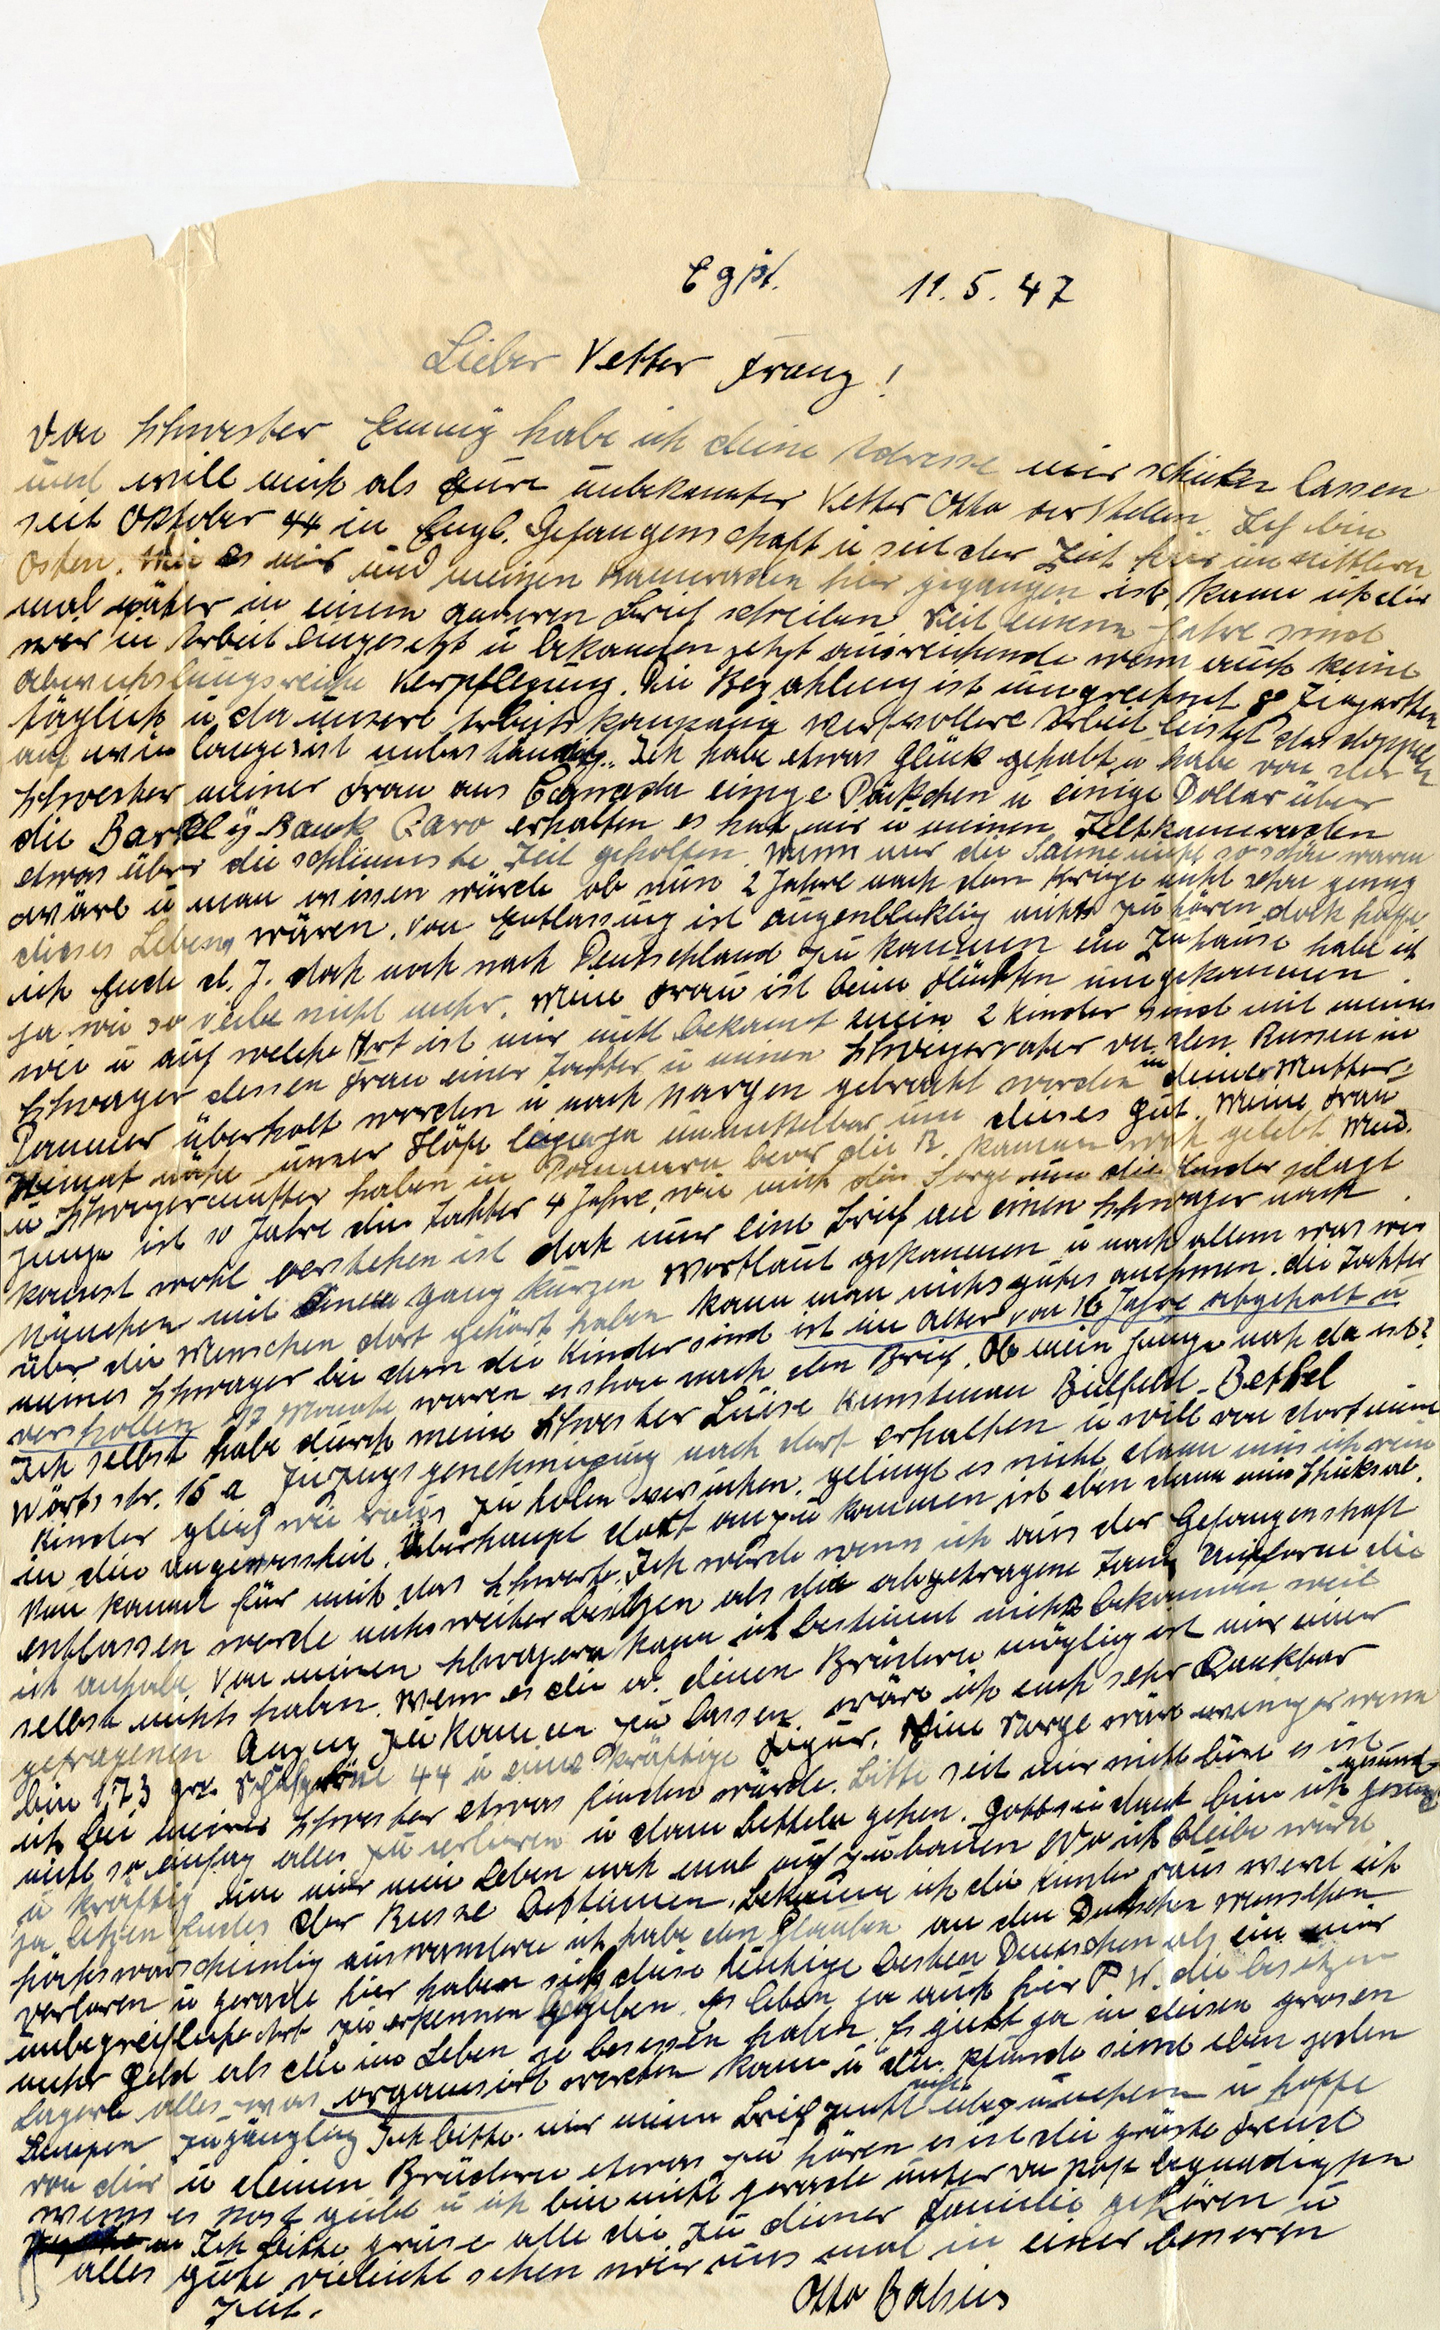 Egpt. 11. 5. 47
Lieber Vetter Franz!
Von Schwester Emmy habe ich deine Adresse mir schicken lassen
und will mich als Eure unbekannter Vetter Otto vorstellen. Ich bin
seit Oktober 44 in Engl. Gefangenschaft u seit der Zeit hier im mittlern
Osten. Wie es mir und meinen Kameraden hier gegangen ist, kann ich dir
mal näher in einem anderen Brief schreiben. Seit einem Jahre sind
wir in Arbeit eingesetzt u bekommen jetzt ausreichende wenn auch keine
abwechslungsreiche Verpflegung. Die Bezahlung ist umgerechnet 8 Ziegaretten
täglich u da unsere Arbeitskompanie wertvollere Arbeit leistet das doppelte
auf wie lange ist unbeständig. Ich habe etwas Glück gehabt u habe von der
Schwester meiner Frau aus Canada einige Päckchen u einige Dollar über
die Barkly Bank Caro erhalten es hat mir u meinen Zeltkameraden
etwas über die schlimmste Zeit geholfen. Wenn nur die Sonne nicht so schön warm
wäre u man wissen würde ob nun 2 Jahre nach dem Kriege nicht schon genug
dieses Lebens wären. Von Entlassung ist augenblicklig nichts zu hören doch hoffe
ich Ende d. J. doch noch nach Deutschland zu kommen ein Zuhause habe ich
ja wie so viele nicht mehr. Meine Frau ist beim Flüchten umgekommen
wie u auf welche Art ist mir nicht bekannt mein 2 Kinder sind mit meine
Schwager dessen Frau einer Tochter u meinen Schwiegervater von den Russen in
Pommer überholt worden u nach gebracht worden in deiner Mutter-
Heimat nähe unser Höfe liegen ja unmittelbar um dieses Gut. Meine Frau
u Schwiegermutter haben in Pommern bevor die R. kamen noch gelebt. Mein
Junge ist 10 Jahre die Tochter 4 Jahre, wie mich die Sorge um die Kinder plagt
kannst wohl verstehen ist doch nur eine Brief an einen Schwager nach
München mit einem ganz kurzen Wortlaut gekommen u nach allem was wir
über die Menschen dort gehört haben kann man nichs gutes annehmen. die Tochter
meines Schwager bei dem die Kinder sind ist im Alter von 16 Jahre abgeholt u
verschollen Monate waren es schon nach den Brief. Ob mein Junge noch da ist?
Ich selbst habe durch meine Schwester Luise Kunstmann Bielfeld-Bethel
str. 15 a Zuzugsgenehmigung nach dort erhalten u will von dort meine
Kinder gleich wie raus zu holen versuchen, gelingt es nicht, dann mus ich rein
in die ungewissheit. Überhaupt dort anzukommen ist eben dann mein Schiksal.
Nun kommt für mich das Schwerste. Ich würde wenn ich aus der Gefangenschaft
entlassen werde nichs weiter besitzen als die abgetragene Uniform die
ich anhabe. Von meinen Schwagern kann ich bestimmt nichts bekommen weil
selbst nichts haben. Wenn es die u. deinen Brüdern möglig ist mir einen
getragenen Anzug zu kommen zu lassen wäre ich euch sehr Dankbar
bin 1,73 grs. 44 u eine kräftige Figur. Meine Sorge wäre weniger wenn
ich bei meiner Schwester etwas finden würde. Bitte seit mir nicht böse es ist
nicht so einfag alles zu verlieren u dann betteln gehen. Gottseidank bin ich gesund
u kräftig um mir mein Leben noch mal auf zu bauen Wo ich bleibe würd
ja letzen Endes der Russe bestimmen. Bekomme ich die Kinder raus werd ich
höchswarscheinlig auswandern ich habe den Glauben an den Deutschen Menschen
verloren u gerade hier haben sich diese tüchtige besten Deutschen als ein mir
unbegreifliche Art zu erkennen gegeben. Es leben ja auch hier P. W. die besitzen
mehr Geld als die im Leben je besessen haben. Es giebt ja in diesen grosen
Lagern alles was organisirt werden kann u die sind eben jeden
Lumpen zugänglig Ich bitte mir meinen Brief nicht übelzunehmen u hoffe
von dir u deinen Brüdern etwas zu hören es ist die gröste Freude
wenn es Post giebt u ich bin nicht gerade unter von Post begnadigten
Ich bitte grüse alle die zu deiner Familie gehören u
alles gute vieleicht sehen wir uns mal in einer besseren
Zeit.
Otto